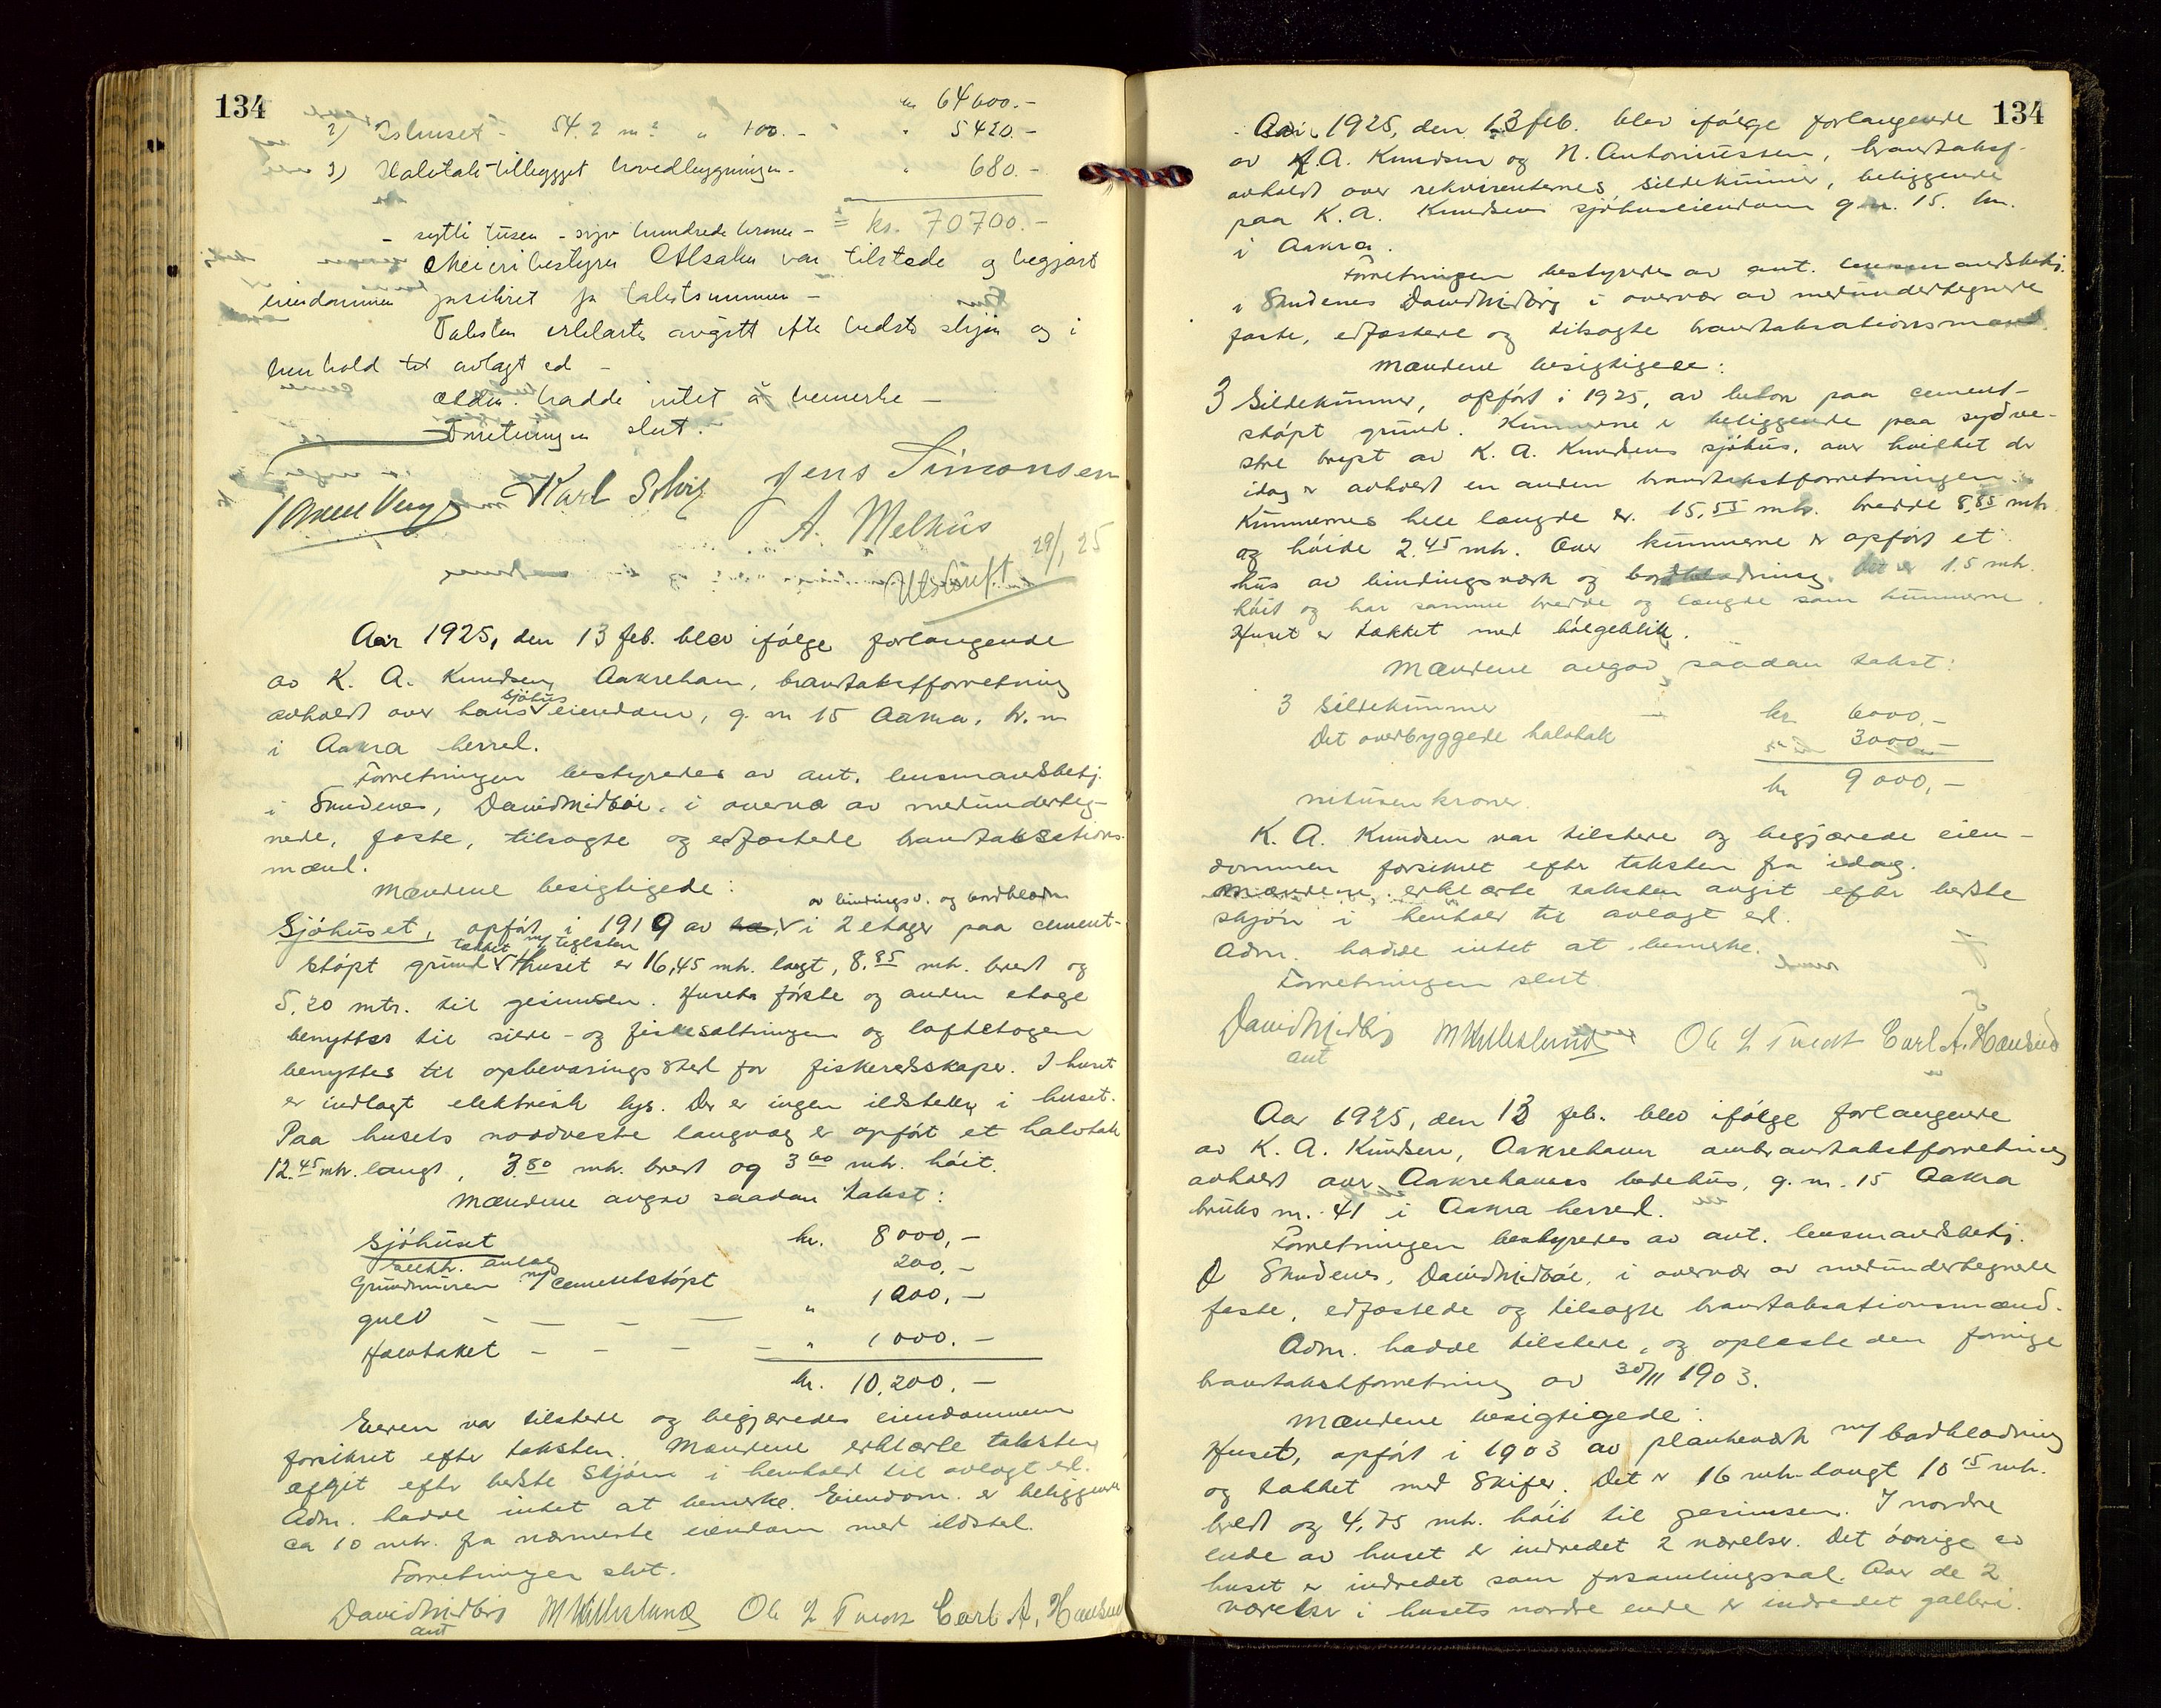 134
kr 64600.-
2) Ishuset - 54.2 m² a 100.- " 5420.-
3) Halvtak-tillegget hovedbygningen - " 680.-
= kr. 70700.-
- sytti tusen - syv hundrede kroner -
Meieribestyrer Alsaker var tilstede og begjært
eiendommen forsikret for takstsummen -
Taksten erklærtes avgitt efter bedste skjøn og i
henhold til avlagt ed -
Adm. hadde intet å bemerke -
Forretningen slut.
Karl Solvig Jens Simonsen
A. Melhus
Utskrift 29/1 25
Aar 1925, den 13 feb. blev ifølge forlangende
av K. A. Knudsen, Aakrehavn, brandtakstforretning
avholdt over hans sjøhus eiendom, g. nr 15 Aakra, br. nr
i Aakra herred.
Forretningen bestyredes av ant. lensmandsbetj.
i Skudenes, David Midbøe, i overvær av medunderteg-
nede, faste, tilsagte og edfæstede brandtaksations-
mænd.
Mændene besigtigede:
av bindingsv. og bordklædn
Sjøhuset, opført i 1919 av i 2 etager paa cement-
takket m/ teglsten
støpt grund Huset er 16,45 mtr. langt, 8,85 mtr. bredt og
5,20 mtr. til gesimsen. Husets første og anden etage
benyttes til silde- og fiskesaltningen og loftetagen
benyttes til opbevaringssted for fiskeredskaper. I huset
er indlagt elektrisk lys. Der er ingen ildsteder i huset.
Paa husets nordveste langvæg er opført et halvtak
12.45 mtr. langt, 3.80 mtr. bredt og 3 60 mtr. høit.
Mændene avgav saadan takst:
Sjøhuset kr. 8000,-
elektr. anlæg 200,-
Grundmuren m/ cementstøpt
gulv - - - - " 1000,-
Halvtaket - - - - " 1000.-
kr. 10,200.-
Eieren var tilstede og begjæredes eiendommen
forsikret efter taksten. Mændene erklærte taksten
afgit efter bedste skjøn i henhold til avlagt ed.
Adm. hadde intet at bemerke. Eiendom. er beliggende
ca 10 mtr. fra nærmeste eiendom med ildsted.
Forretningen slut.
David Midbøe Ole L Tvedt Carl A. Hansen
ant
134
Aar 1925, den 13 feb. blev ifølge forlangende
av K.A. Knudsen og N. Antoniussen, brandtakstf.
avholdt over rekvirenternes sildekummer, beliggende
paa K. A. Knudsens sjøhuseiendom g. nr. 15. br.
i Aakra.
Forretningen bestyredes av ant. lensmandsbetj.
i Skudenes David Midbøe i overvær av medundertegnede
faste, edfæstede og tilsagte brandtaksationsmænd.
Mændene besigtigede:
3 Sildekummer, opført i 1925, av beton paa cement-
støpt grund. Kummerne er beliggende paa sydve-
stre bryst av K. A. Knudsens sjøhus, over hvilket de
idag er avholdt en anden brandtakstforretningen.
Kummernes hele længde er 15,55 mtr. bredde 8,85 mtr
og høide 2.45 mtr. Over kummerne er opført et
hus av bindingsverk og bordklædning. Det er 1.5 mtr.
høit og har samme bredde og længde som kummerne.
Huset er takket med bølgeblik.
Mændene avgav saadan takst:
3 Sildekummer kr 6000,-
Det overbyggede halvtak 3000,-
kr 9000,-
nitusen kroner.
K. A. Knudsen var tilstede og begjærede eien-
dommen forsikret efter taksten fra idag.
Mændene erklærte taksten avgit efter bedste
skjøn i henhold til avlagt ed.
Adm. hadde intet at bemerke.
Forretningen slut.
David Midbøe Ole L Tvedt Carl A. Hansen
ant
Aar 1925, den 13 feb. blev ifølge forlangende
av K. A. Knudsen, Aakrehavn ombrandtakstforretning
avholdt over Aakrehavns bedehus, g. nr. 15 Aakra
bruks nr. 41 i Aakra herred.
Forretningen bestyredes av ant. lensmandsbetj.
i Skudenes, David Midbøe, i overvær av medundertegnede
faste, edfæstede og tilsagte brandtaksationsmænd.
Adm. hadde tilstede, og oplæste den forrige
brandtakstforretning av 30/11 1903.
Mændene besigtigede:
Huset, opført i 1903 av plankeverk m/ bordklædning
og takket med Skifer. Det er 16 mtr. langt 10 15 mtr.
bredt og 4,75 mtr. høit til gesimsen. I nordre
ende av huset er indredet 2 værelser. Det øvrige av
huset er indredet som forsamlingssal. Over de 2
værelser i husets nordre ende er indredet galleri.